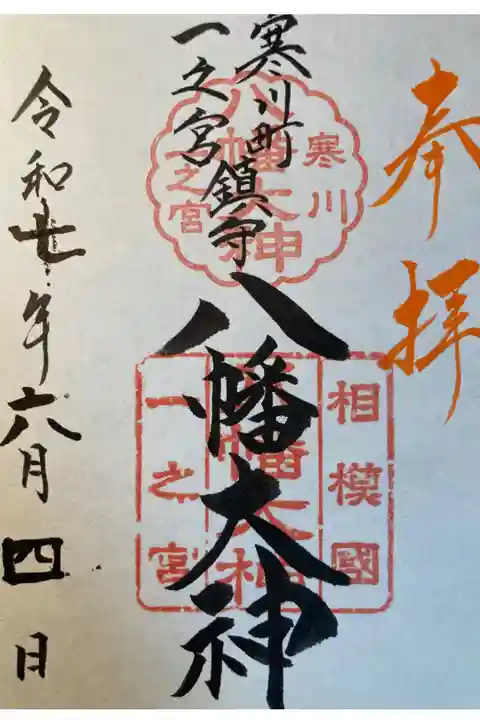 奉拝
寒川町
一之宮鎮守
八幡大神
寒川
八幡大神
一之宮
相模國
八幡大神
一之宮
令和七年六月四日